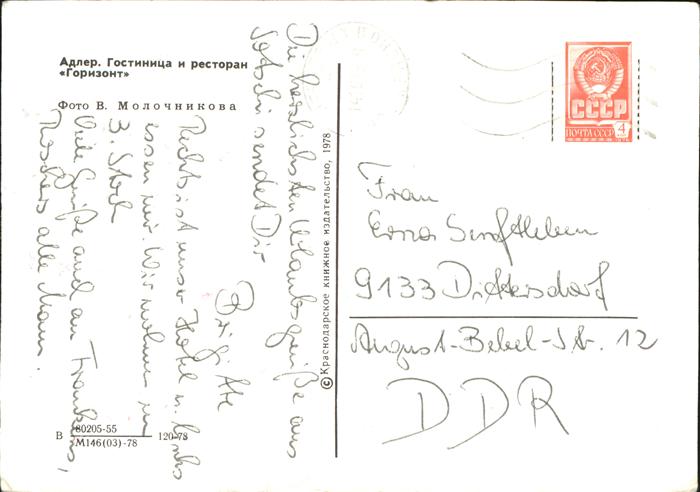 Адлер. Гостиница и ресторан
«Горизонт»
Фото В. Молочникова
Die herzlichsten Urlaubsgrüße aus
Sotschi sendet Dir
Rechts ist unser Hotel u. links
essen wir. Wir wohnen im
3. Stock
Viele Grüße auch an
alle
В 80205-55
М146(03)-78 120-78
© Краснодарское книжное издательство, 1978
СССР
ПОЧТА СССР 4
Frau
Erna
9133 Dittersdorf
August-Bebel-Str. 12
DDR